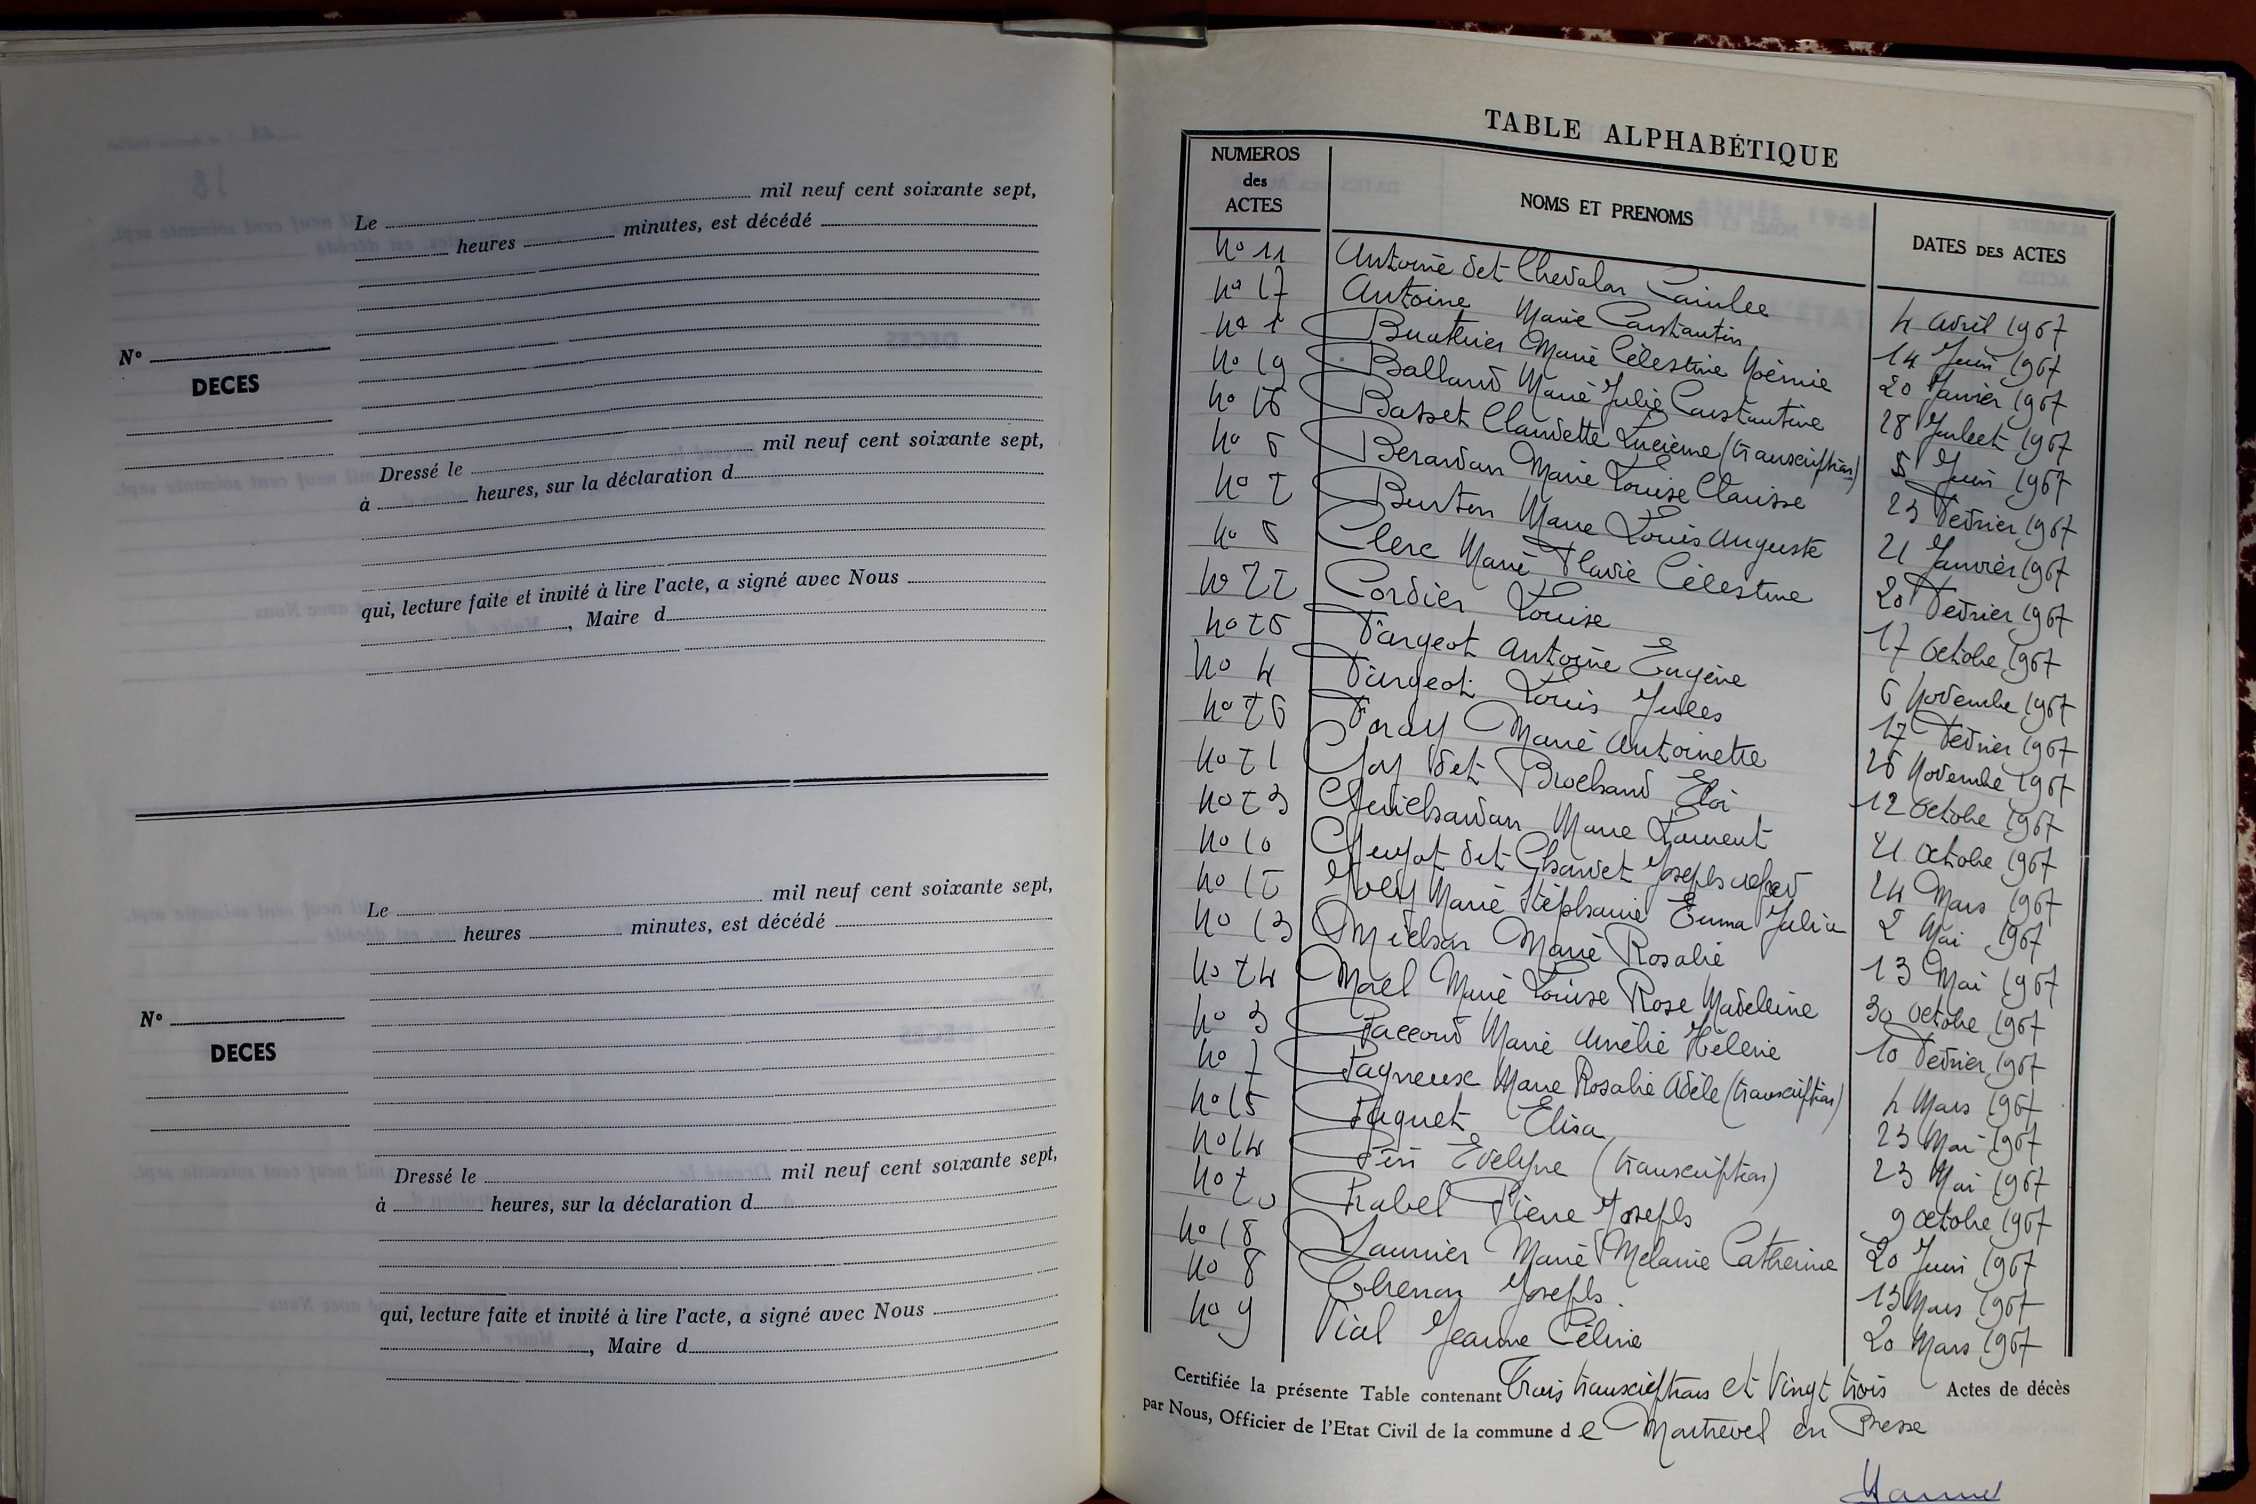 Le mil neuf cent soixante sept,
heures minutes, est décédé
N°
DECES
Dressé le mil neuf cent soixante sept,
à heures, sur la déclaration d
qui, lecture faite et invité à lire l'acte, a signé avec Nous
, Maire d
Le mil neuf cent soixante sept,
heures minutes, est décédé
N°
DECES
Dressé le mil neuf cent soixante sept,
à heures, sur la déclaration d
qui, lecture faite et invité à lire l'acte, a signé avec Nous
, Maire d
TABLE ALPHABÉTIQUE
NUMEROS des ACTES NOMS ET PRENOMS DATES DES ACTES
No 11 Antoine dit Chevalon Camlee 4 Avril 1967
No 17 Antoine Marie Constantin 14 Juin 1967
No 1 Buathier Marie Célestine Noémie 20 Janvier 1967
No 19 Balland Marie Julie Constantine 28 Juillet 1967
No 16 Basset Claudette Lucienne (transcription) 5 Juin 1967
No 6 Berardan Marie Louise Clarisse 23 Février 1967
No 2 Burton Marie Louis Auguste 21 Janvier 1967
No 5 Clerc Marie Flavie Célestine 20 Février 1967
No 22 Cordier Louise 17 Octobre 1967
No 25 Fargeot Antoine Eugène 6 Novembre 1967
No 4 Fargeot Louis Jules 17 Février 1967
No 26 Foray Marie Antoinette 26 Novembre 1967
No 21 Goy dit Brochand Eloi 12 Octobre 1967
No 23 Guichardan Marie Laurent 21 Octobre 1967
No 10 Guyot dit Chardet Joseph Alfred 24 Mars 1967
No 12 Joly Marie Stéphanie Emma Julia 2 Mai 1967
No 13 Michon Marie Rosalie 13 Mai 1967
No 24 Morel Marie Louise Rose Madeleine 30 Octobre 1967
No 3 Paccoud Marie Amélie Hélène 10 Février 1967
No 7 Pagneux Marie Rosalie Adèle (transcription) 4 Mars 1967
No 15 Puguet Elisa 23 Mai 1967
No 14 Piri Evelyne (transcription) 23 Mai 1967
No 20 Rabel Pierre Joseph 9 Octobre 1967
No 18 Saunier Marie Mélanie Catherine 20 Juin 1967
No 8 Thenon Joseph 13 Mars 1967
No 9 Vial Jeanne Céline 20 Mars 1967
Certifiée la présente Table contenant Trois transcriptions et Vingt trois Actes de décès
par Nous, Officier de l'Etat Civil de la commune de Montrevel en Bresse